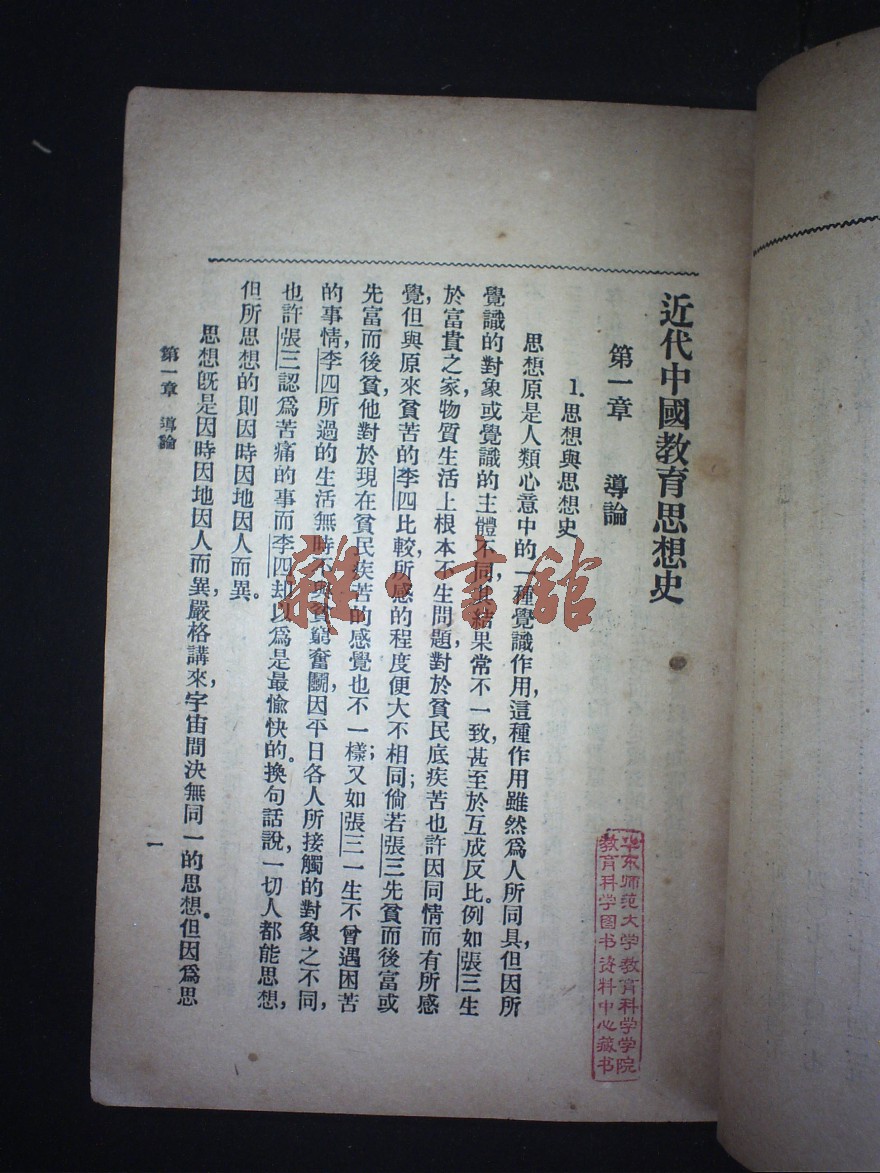 近代中國教育思想史
第一章 導論
1.思想與思想史
思想原是人類心意中的一種覺識作用,這種作用雖然爲人所同具,但因所
覺識的對象或覺識的主體不同,其結果常不一致,甚至於互成反比。例如張三生
於富貴之家,物質生活上根本不生問題,對於貧民底疾苦也許因同情而有所感
覺,但與原來貧苦的李四比較,所感的程度便大不相同;倘若張三先貧而後富或
先富而後貧,他對於現在貧民疾苦的感覺也不一樣;又如張三一生不曾遇困苦
的事情,李四所過的生活無時不與貧窮奮鬭,因平日各人所接觸的對象之不同,
也許張三認爲苦痛的事而李四却以爲是最愉快的。換句話說,一切人都能思想,
但所思想的則因時因地因人而異。
思想旣是因時因地因人而異,嚴格講來,宇宙間決無同一的思想。但因爲思
第一章 導論
一
华东师范大学教育科学学院
教育科学图书资料中心藏书
雜·書館